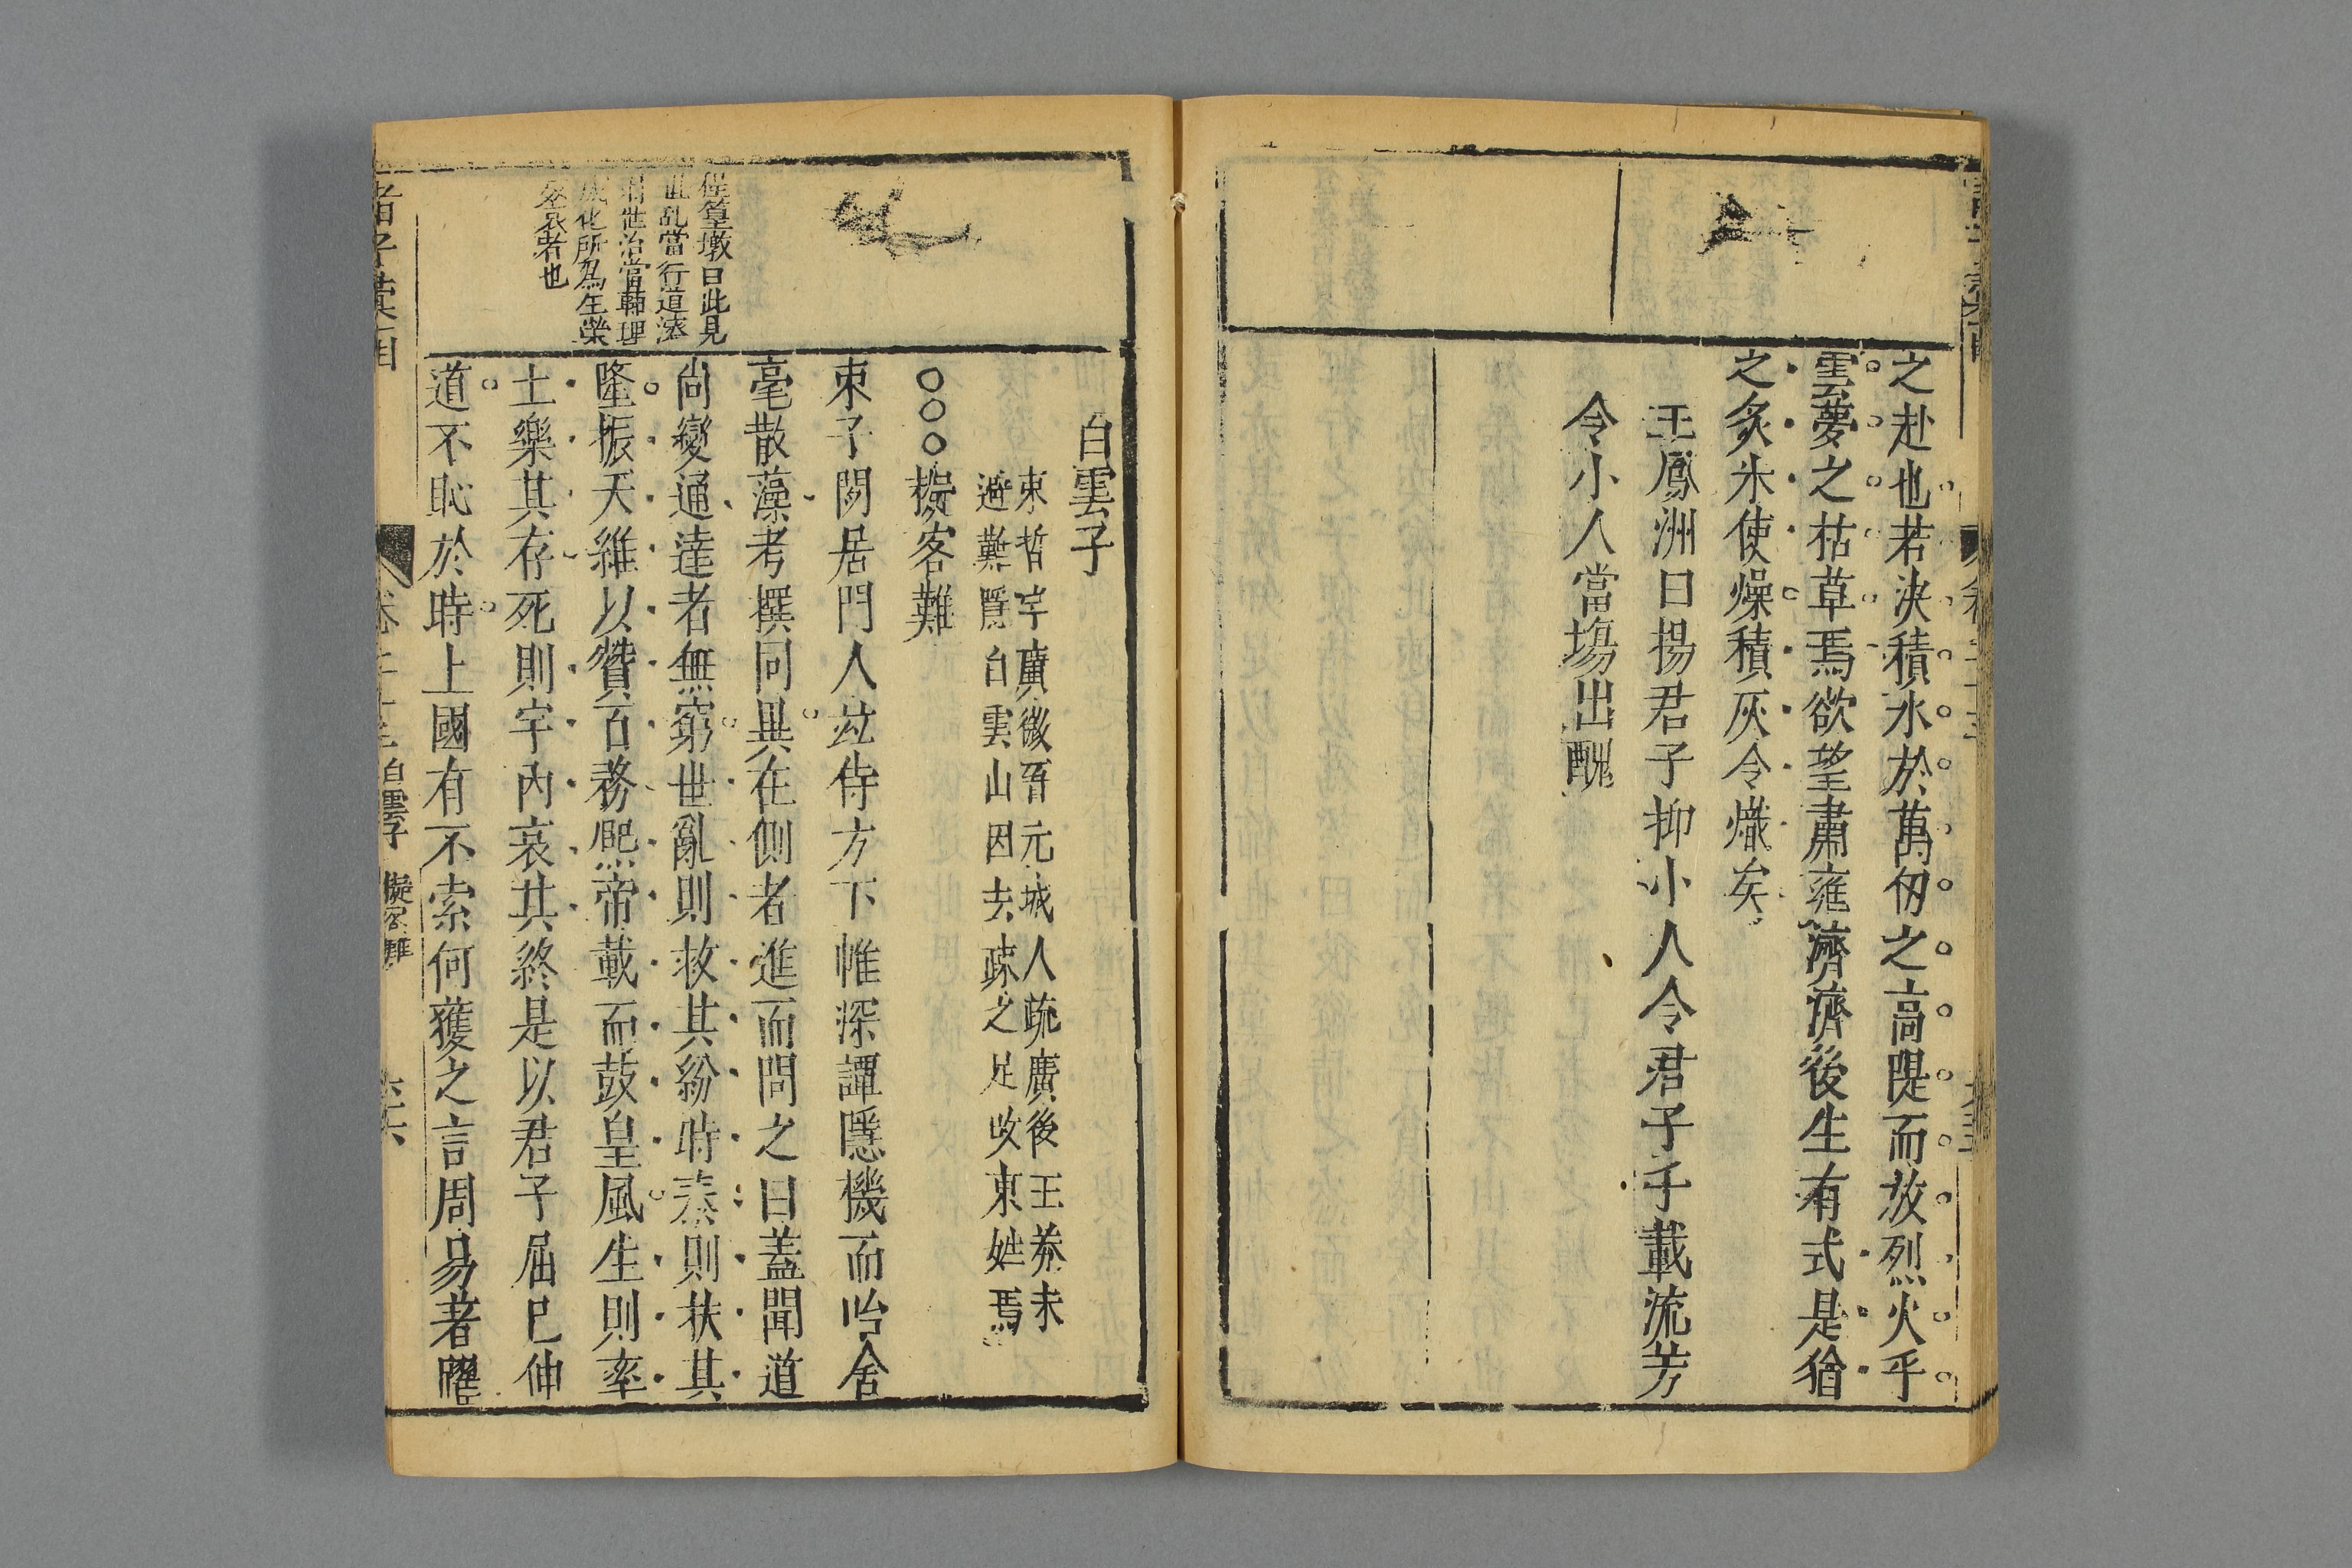 之赴也若決積水於萬仞之高隄而放烈火乎
雲夢之枯草焉欲望肅雍濟濟後生有式是猶
之炙氷使燥積灰令熾矣
王鳳洲曰揚君子抑小人令君子千載流芳
令小人當塲出醜
白雲子
束晳字廣微晉元城人疏廣後王莽末
避難隱白雲山因去疎之足改束姓焉
○○○擬客難
束子閒居門人竝侍方下帷深譚隱機而咍含
毫散藻考撰同異在側者進而問之曰蓋聞道
尚變通達者無窮世亂則救其紛時泰則扶其
隆振天維以贊百務熈帝載而鼓皇風生則率
土樂其存死則宇內哀其終是以君子屈已伸
道不恥於時上國有不索何獲之言周易著躍
程篁墩曰此見
世亂當行道濟
時世治當輔理
成化所爲生榮
死哀者也
諸子彙函
白雲子
擬客難
六六